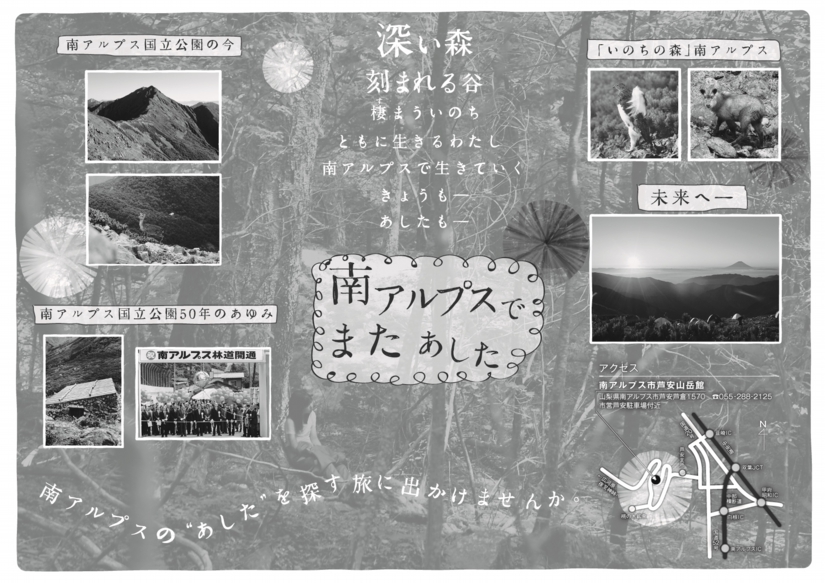 南アルプス国立公園の今
深い森
刻まれる谷
棲まういのち
ともに生きるわたし
南アルプスで生きていく
きょうも―
あしたも―
「いのちの森」南アルプス
未来へ―
南アルプスで
また あした
南アルプス国立公園50年のあゆみ
南アルプス林道開通
アクセス
南アルプス市芦安山岳館
山梨県南アルプス市芦安芦倉1570 ☎055-288-2125
市営芦安駐車場付近
N
双葉JCT
白根IC
南アルプスIC
南アルプスの“あした”を探す旅に出かけませんか。